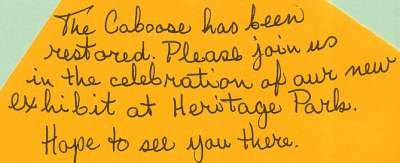 The Caboose has been
restored. Please join us
in the celebration of our new
exhibit at Heritage Park.
Hope to see you there.